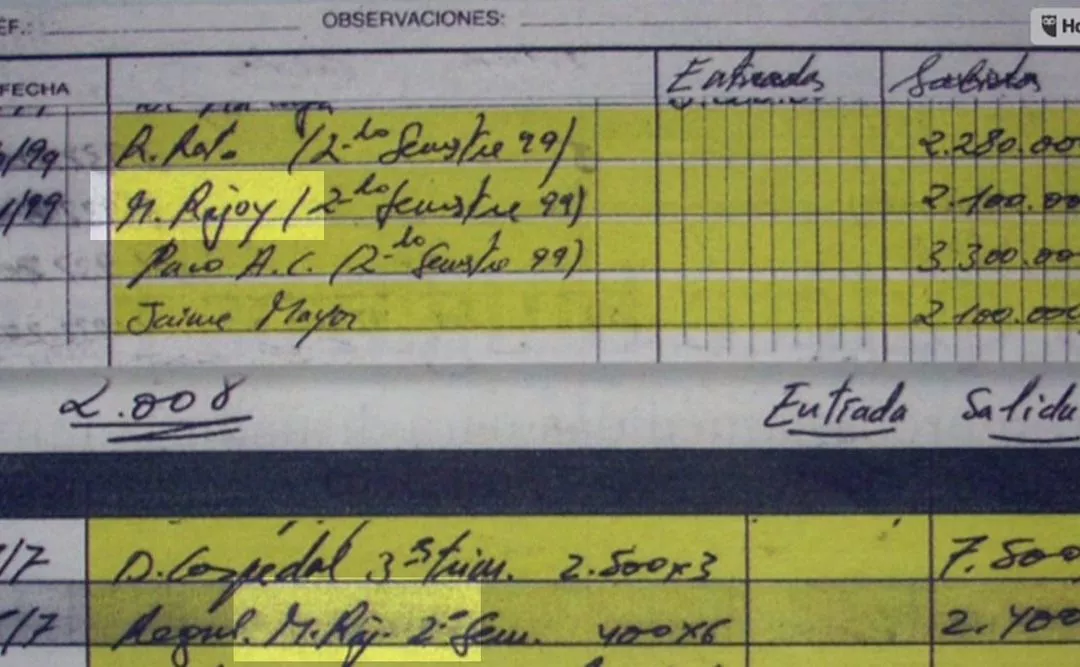 EF.: OBSERVACIONES:
FECHA Entradas Salidas
/99 R. Rato (2-do Semestre 99) 2.280.00
/99 M. Rajoy (2-do Semestre 99) 2.100.00
Paco A.C. (2-do Semestre 99) 3.300.00
Jaime Mayor 2.100.000
2.008 Entrada Salida
/7 D. Cospedal 3er trim. 2.500x3 7.500
/7 M. Raj. 2º Sem. 400x6 2.400